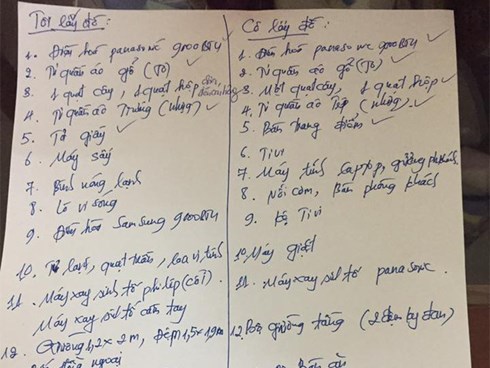 Tôi lấy đồ:
1. Điều hoà panasonic 9000BTU
2. Tủ quần áo gỗ (To)
3. 1 quạt cây, 1 quạt hộp
4. Tủ quần áo Trắng (nhựa)
5. Tủ giày
6. Máy sấy
7. Bình nóng lạnh
8. Lò vi sóng
9. Điều hoà Samsung 9000BTU
10. Tủ lạnh, quạt trần, loa vi tính
11. Máy xay sinh tố philip (cối)
Máy xay sinh tố cầm tay
12. Giường 1,2 x 2m, Đệm 1,5x1,9m
ngoài
Cô lấy đồ:
1. Điều hoà panasonic 9000BTU
2. Tủ quần áo gỗ (To)
3. Một quạt cây, 1 quạt hộp
4. Tủ quần áo (nhựa)
5. Bàn trang điểm
6. Tivi
7. Máy tính laptop, giường phòng khách
8. Nồi cơm, Bàn phòng khách
9. Kệ Tivi
10. Máy giặt
11. Máy xay sinh tố panasonic
12. giường tầng (2 đệm